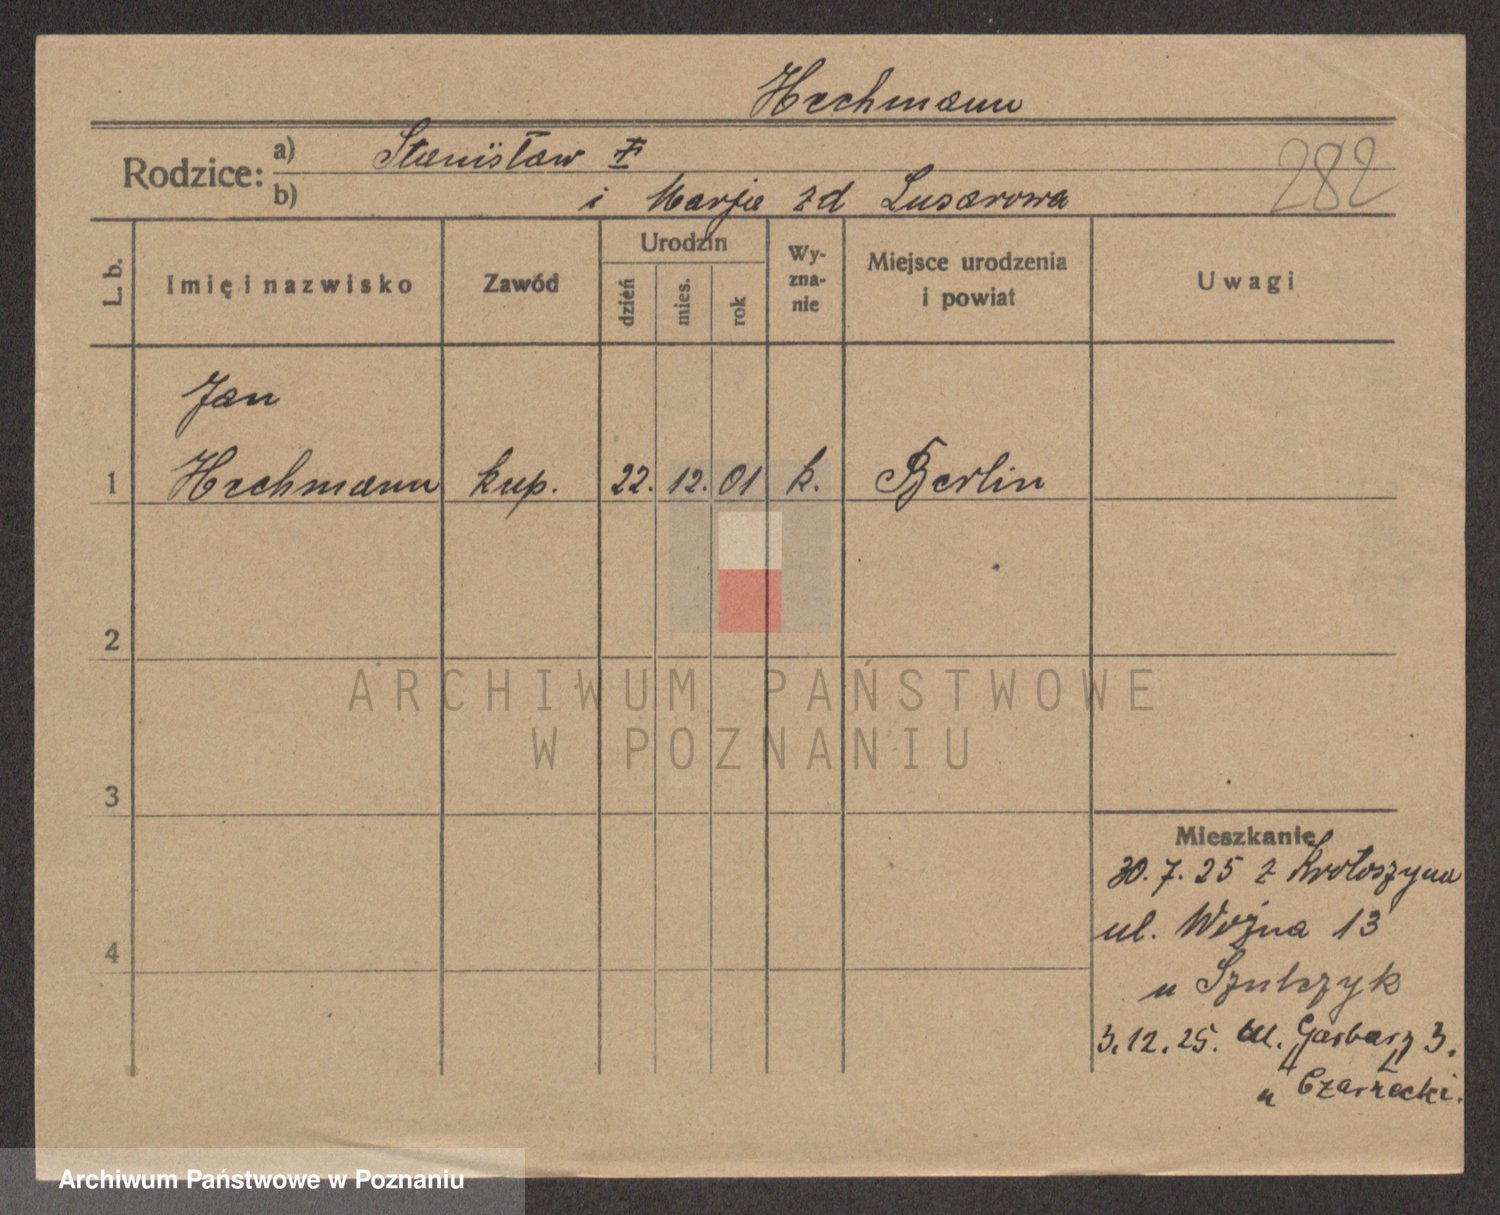 Hechmann
Rodzice: a) Stanisław
282
b) i Marja zd Lusarowa
L. b.
Imię i nazwisko
Zawód
Urodzin
dzień
mies.
rok
Wy-
zna-
nie
Miejsce urodzenia
i powiat
Uwagi
Jan
1 Hechmann kup. 22. 12. 01 k. Berlin
2
ARCHIWUM PAŃSTWOWE
W POZNANIU
3
Mieszkanie
30. 7. 25 z Krotoszyna
ul. Woźna 13
4
u Szulczyk
3. 12. 25. ul. Garbarz 3.
u Czarnecki.
Archiwum Państwowe w Poznaniu